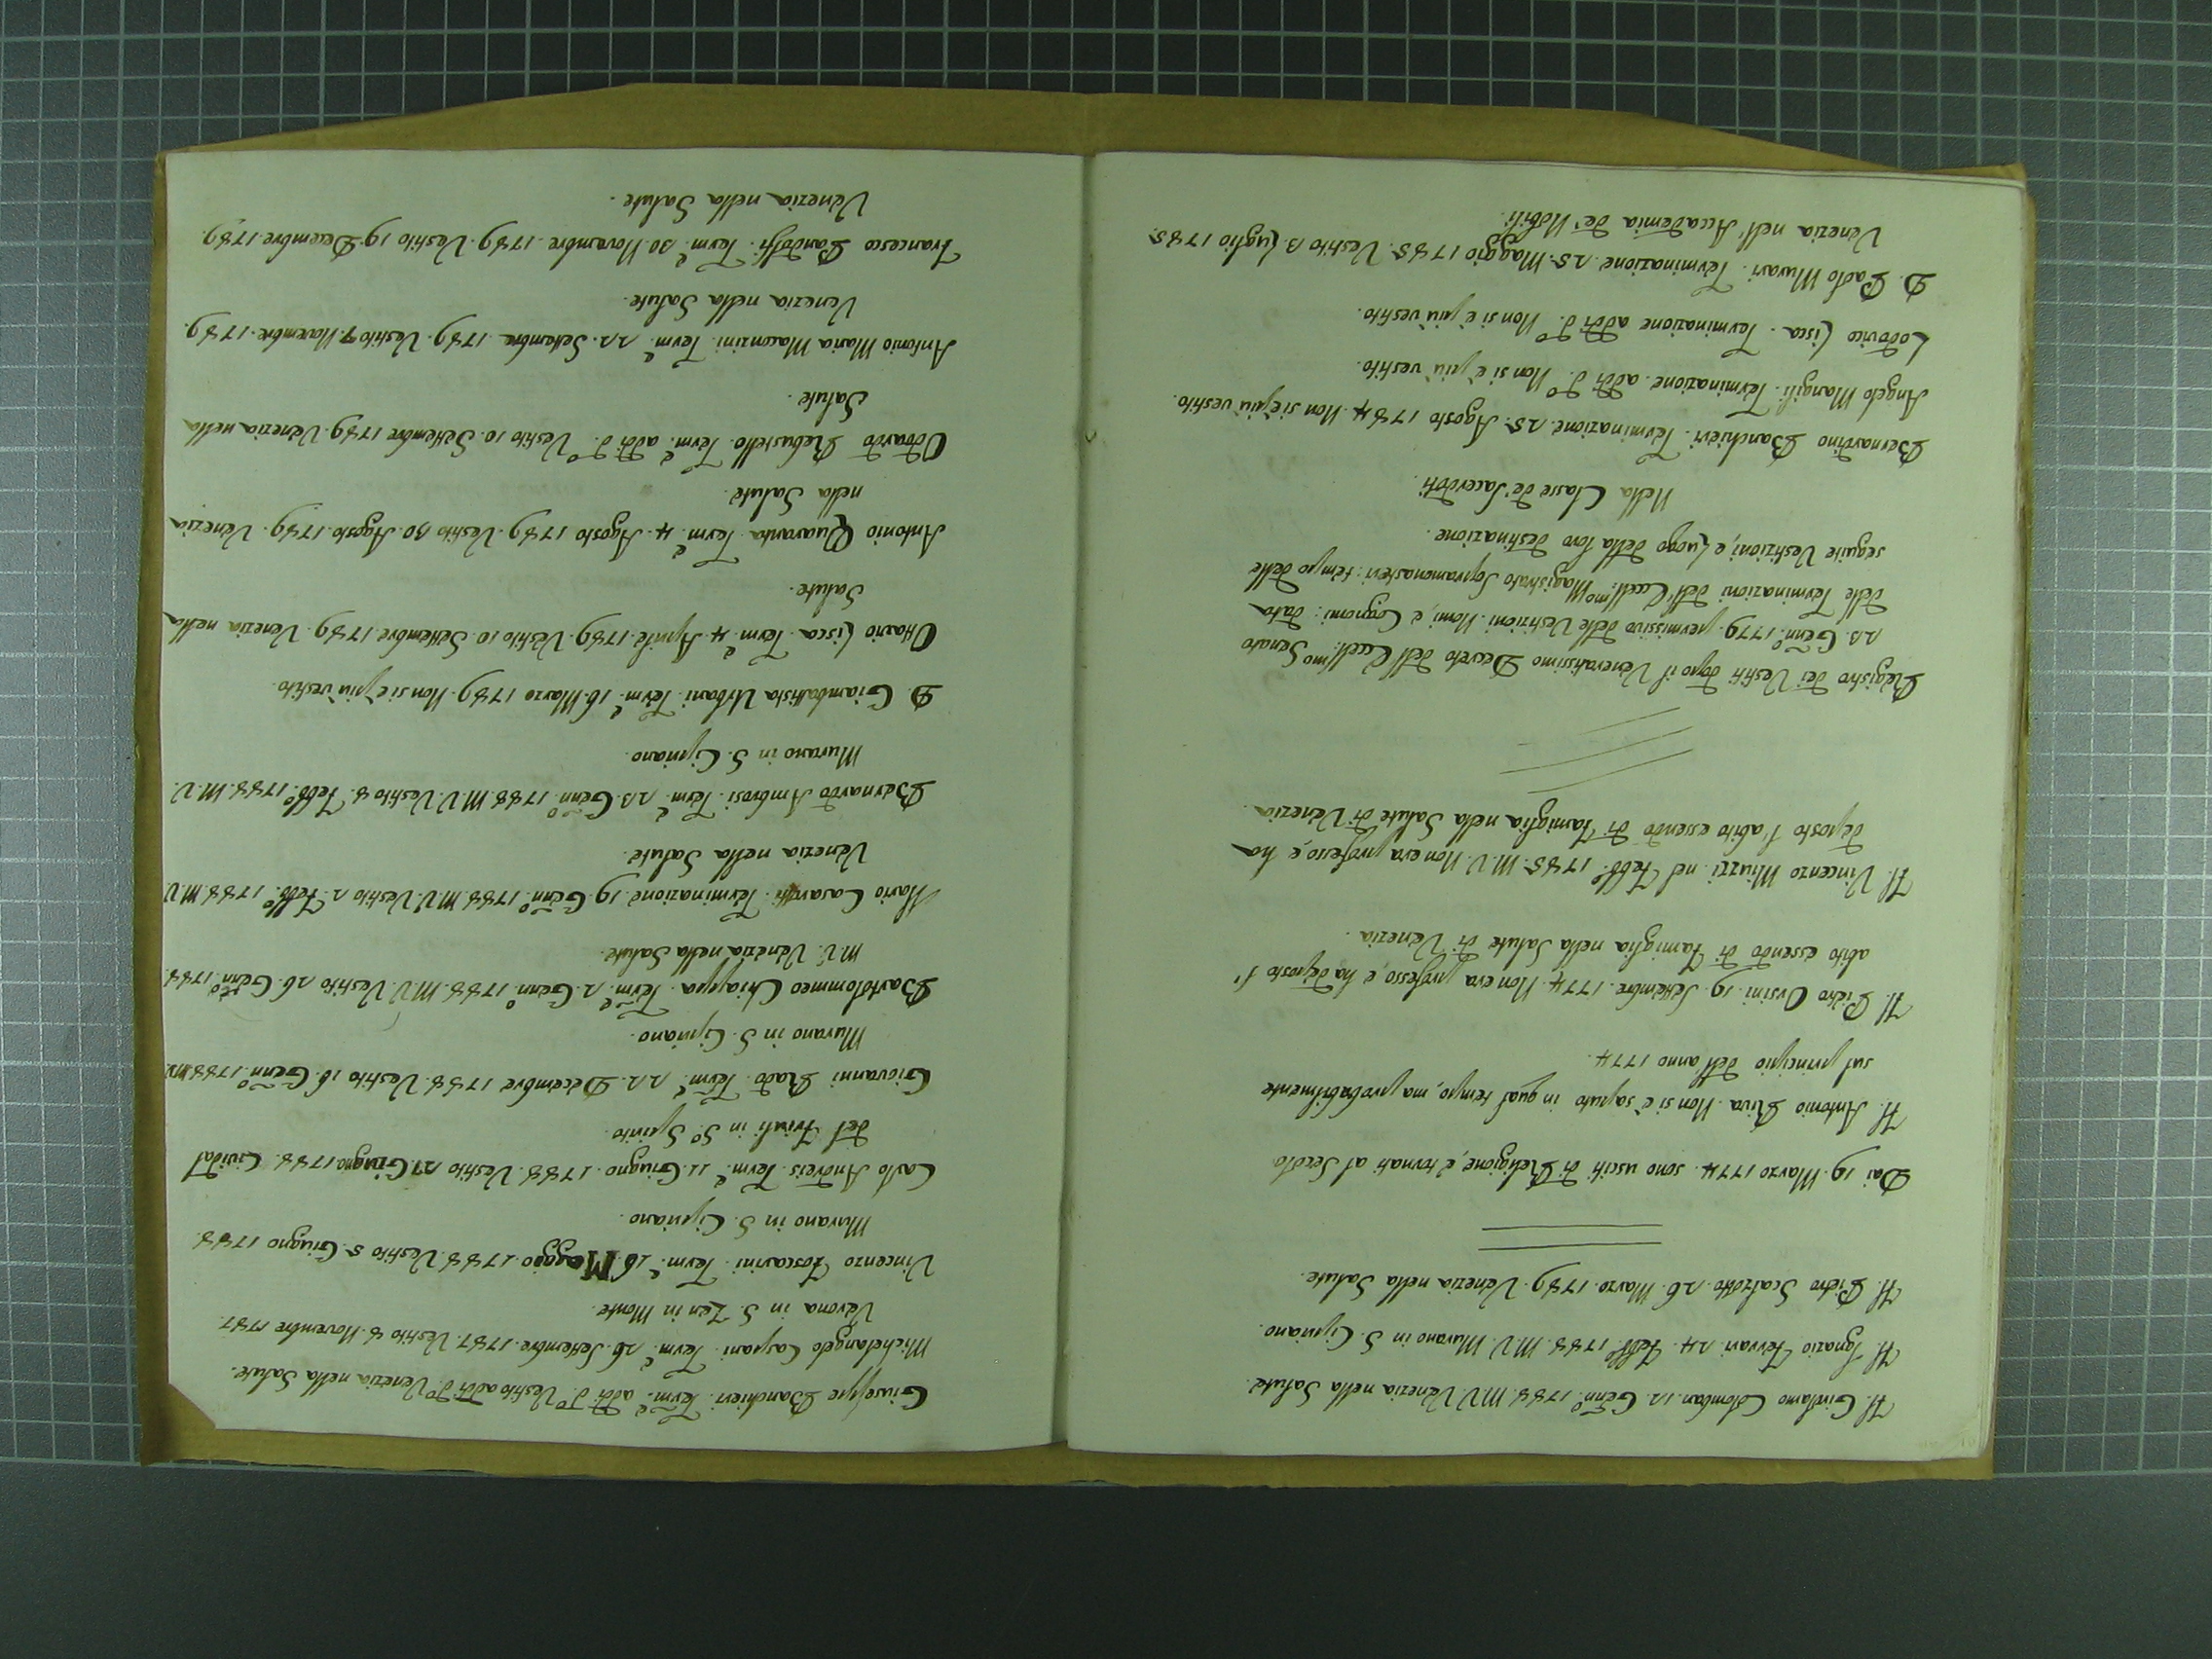 H. Girolamo Colomban. 12. Genn.º 1788. M.V. Venezia nella Salute.
H. Ignazio Ferrari. 24. Febb.º 1788. M.V. Murano in S. Cipriano.
H. Pietro Scalzotto. 26. Marzo. 1789. Venezia nella Salute.
Dai 19. Marzo 1774. sono usciti di Religione, e tornati al Secolo
H. Antonio Riva. Non si è saputo in qual tempo, ma probabilmente
sul principio dell'anno 1774.
H. Pietro Orsini. 19. Settembre. 1774. Non era professo, e ha deposto l'
abito essendo di Famiglia nella Salute di Venezia.
H. Vincenzo Miuzzi. nel Febb.º 1785. M.V. Non era professo, e ha
deposto l'abito essendo di Famiglia nella Salute di Venezia.
Registro dei Vestiti dopo il Veneratissimo Decreto dell'Eccell.mo Senato
23. Genn.º 1779. permissivo delle Vestizioni. Nomi, e Cognomi: data
delle Terminazioni dell'Eccell.mo Magistrato Sopramonasteri: tempo delle
seguite Vestizioni, e Luogo della loro destinazione.
Nella Classe de' Sacerdoti.
Bernardino Banchieri. Terminazione. 25. Agosto 1784. Non si è più vestito.
Angelo Mangili. Terminazione. addì d.º Non si è più vestito.
Lodovico Lisca. Terminazione addì d.º Non si è più vestito.
D. Paolo Murari. Terminazione. 25. Maggio 1785. Vestito 3 Luglio 1785.
Venezia nell'Accademia de' Nobili.
Giuseppe Banchieri. Term.e addì d.º Vestito addì d.º Venezia nella Salute.
Michelangelo Caspani. Term.e 26. Settembre. 1787. Vestito 8. Novembre 1787.
Verona in S. Zen in Monte.
Vincenzo Foscarini. Term.e 16. Maggio. 1788. Vestito 5. Giugno 1788.
Murano in S. Cipriano.
Carlo Andreis. Term.e 11. Giugno. 1788. Vestito 27. Giugno 1788. Cividal
del Friuli in S.º Spirito.
Giovanni Rado. Term.e 22. Decembre 1788. Vestito 16. Genn.º 1788. M.V.
Murano in S. Cipriano.
Bartolommeo Chiappa. Term.e 2. Genn.º 1788. M.V. Vestito 26 Genn.º 1788.
M.V. Venezia nella Salute.
Mario Casarotti. Terminazione. 19. Genn.º 1788. M.V. Vestito 2. Febb.º 1788. M.V.
Venezia nella Salute.
Bernardo Ambrosi. Term.e 23. Genn.º 1788. M.V. Vestito 8. Febb.º 1788. M.V.
Murano in S. Cipriano.
D. Giambattista Urbani. Term.e 16. Marzo 1789. Non si è più vestito.
Ottavio Lisca. Term.e 4. Aprile. 1789. Vestito 10. Settembre. 1789. Venezia nella
Salute.
Antonio Quaranta. Term.e 4. Agosto 1789. Vestito 30. Agosto. 1789. Venezia
nella Salute.
Odoardo Rebustello. Term.e addì d.º Vestito 10. Settembre 1789. Venezia nella
Salute.
Antonio Maria Maconzini. Term.e 22. Settembre. 1789. Vestito 7. Novembre. 1789.
Venezia nella Salute.
Francesco Bandolfi. Term.e 30. Novembre. 1789. Vestito 19. Decembre. 1789.
Venezia nella Salute.